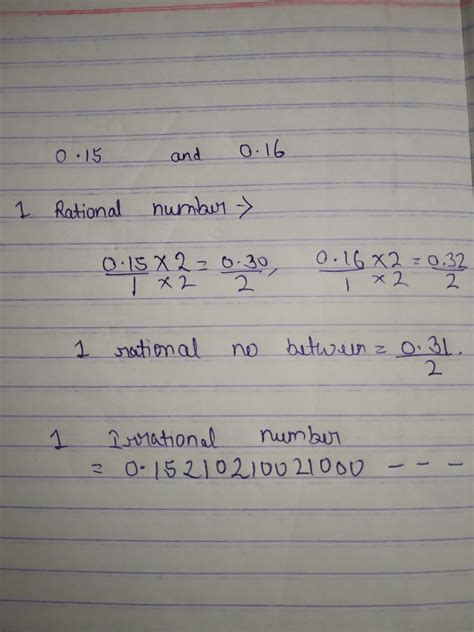 0.15 and 0.16
1 Rational number →
0.15 × 2 = 0.30, 0.16 × 2 = 0.32
1 × 2 2 1 × 2 2
1 rational no between = 0.31.
2
1 Irrational number
= 0.15210210021000 - - -